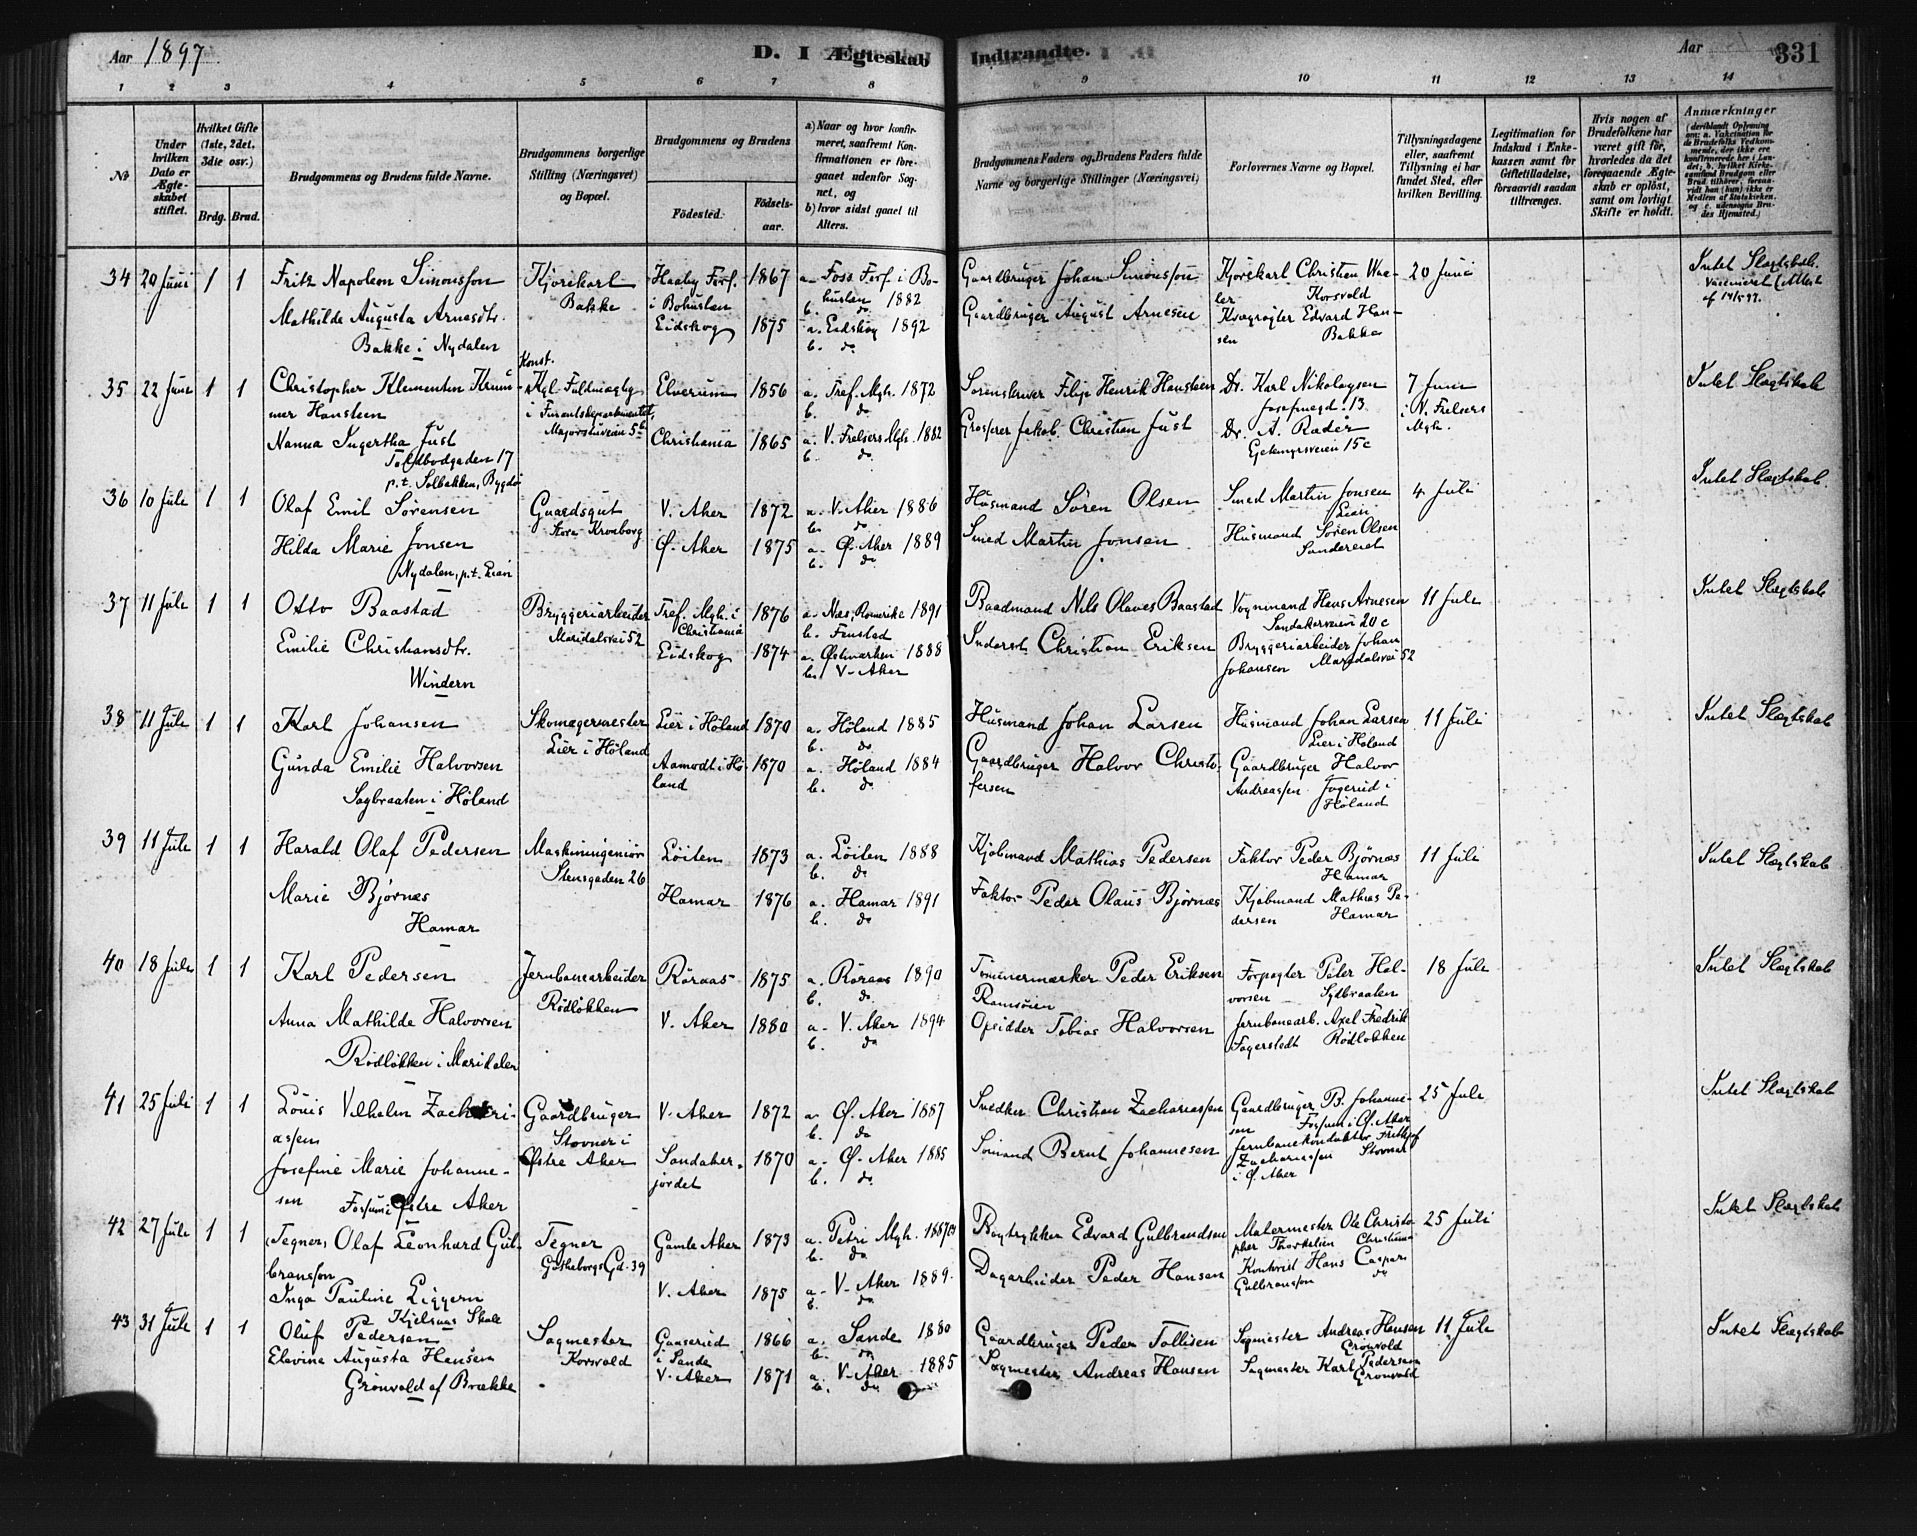 Aar 1897.
D. I Ægteskab Indtraadte.
Aar
331
1 2 3 4 5 6 7 8 9 10 11 12 13 14
No
Under hvilken Dato er Ægteskabet stiftet.
Hvilket Gifte (1ste, 2det, 3die osv.)
Brdg. Brud.
Brudgommens og Brudens fulde Navne.
Brudgommens borgerlige Stilling (Næringsvei) og Bopæl.
Brudgommens og Brudens
Födested.
Födselsaar.
a) Naar og hvor konfirmeret, saafremt Konfirmationen er foregaaet udenfor Sognet, og
b) hvor sidst gaaet til Alters.
Brudgommens Faders og Brudens Faders fulde Navne og borgerlige Stillinger (Næringsvei)
Forlovernes Navne og Bopæl.
Tillysningsdagene eller, saafremt Tillysning ei har fundet Sted, efter hvilken Bevilling.
Legitimation for Indskud i Enkekassen samt for Giftetilladelse, forsaavidt saadan tiltrænges.
Hvis nogen af Brudefolkene har været gift för, hvorledes da det foregaaende Ægteskab er oplöst, samt om lovligt Skifte er holdt.
Anmærkninger
34 20 Juni 1 1 Fritz Napoleon Simonsson
Kjørekarl Bakke
Haaby Fors. i Bohuslen 1867
a. Foss Fors. i Bohuslen 1882
b. do
Gaardbruger Johan Simonsson
Kjørekarl Christian Waaler Korsvold
20 Juni
Intet Slægtskab. Vaccineret (Attest af 14/5 97.
Mathilde Augusta Arnesdtr.
Bakke i Nydalen
Eidskog 1875
a. Eidskog 1892
b. do
Gaardbruger August Arnesen
Kvægrøgter Edvard Hansen Bakke
35 22 Juni 1 1 Christopher Klementin Krummer Hansteen
Konst. Kgl. Fuldmægtig i Finantsdepartementet, Majorstuveien 5b
Elverum 1856
a. Tref. Mgh. 1872
b. do
Sorenskriver Filip Henrik Hansteen
Dr. Karl Nikolaysen Josefinegd. 13
7 Juni i V. Frelsers Mgh.
Intet Slægtskab
Nanna Ingertha Just
Toldbodgaden 17
p.t. Solbakken, Bygdø
Christiania 1865
a. V. Frelsers Mgh. 1882
b. do
Grosserer Jakob Christian Just
Dr. A. Rader
Gjetemyrsveien 15c
36 10 Juli 1 1 Olaf Emil Sørensen
Gaardsgut
Store Kronborg
V. Aker 1872
a. V. Aker 1886
b. do
Husmand Søren Olsen
Smed Martin Jonsen Lian
4 Juli
Intet Slægtskab.
Hilda Marie Jonsen
Nydalen, p.t. Lian
Ø. Aker 1875
a. Ø. Aker 1889
b. do
Smed Martin Jonsen
Husmand Søren Olsen
37 11 Juli 1 1 Otto Baastad
Bryggeriarbeider
Maridalsvei 52
Tref. Mgh. i Christiania 1876
a. Næs, Romerike 1891
b. Fenstad
Baadmand Nils Olaves Baastad
Vognmand Hans Arnesen
Sandakerveien 20 c
11 Juli
Intet Slægtskab
Emilie Christiansdtr.
Windern
Eidskog 1874
a. Østmarken 1888
b. V. Aker
Inderst Christian Eriksen
Bryggeriarbeider Johan Johansen Maridalsvei 52
38 11 Juli 1 1 Karl Johansen
Skomagermester
Lier i Høland
Lier i Høland 1870
a. Høland 1885
b. do
Husmand Johan Larsen
Husmand Johan Larsen
Lier i Høland
11 Juli
Intet Slægtskab
Gunda Emilie Halvorsen
Sagbraaten i Høland
Aamodt i Høland 1870
a. Høland 1884
b. do
Gaardbruger Halvor Christofersen
Gaardbruger Halvor Andreassen Fogerud i Høland
39 11 Juli 1 1 Harald Olaf Pedersen
Maskiningeniør
Stensgaden 26
Løiten 1873
a. Løiten 1888
b. do
Kjøbmand Mathias Pedersen
Faktor Peder Bjørnæs Hamar
11 Juli
Intet Slægtskab
Marie Bjørnæs
Hamar
Hamar 1876
a. Hamar 1891
b. do
Faktor Peder Olaus Bjørnæs
Kjøbmand Mathias Pedersen Hamar
40 18 Juli 1 1 Karl Pedersen
Jernbanearbeider
Rødløkken
Røraas 1875
a. Røraas 1890
b. do
Tømmermærker Peder Eriksen Ramsøien
Forpagter Peter Halvorsen Sydbraaten
18 Juli
Intet Slægtskab
Anna Mathilde Halvorsen
Rødløkken i Maridalen
V. Aker 1880
a. V. Aker 1894
b. do
Opsidder Tobias Halvorsen
Jernbanearb. Axel Fredrik Fagerstedt Rødløkken
41 25 Juli 1 1 Louis Vilhelm Zachariassen
Gaardbruger
Stovner i Østre Aker
V. Aker 1872
a. Ø. Aker 1887
b. do
Snedker Christian Zachariassen
Gaardbruger B. Johannesen Fossum i Ø. Aker
25 Juli
Intet Slægtskab
Josefine Marie Johannesen
Fossum i Østre Aker
Sandakerjordet 1870
a. Ø. Aker 1885
b. do
Sømand Bernt Johannesen
Jernbanekonduktør Frithjof Zachariassen Stovner i Ø. Aker
42 27 Juli 1 1 (Tegner) Olaf Leonhard Gulbransson
Tegner
Gøteborgs Gd. 39
Gamle Aker 1873
a. Petri Mgh. 1887
b. do
Bogtrykker Edvard Gulbrandsen
Malermester Ole Christopher Thorkelsen Christiania
25 Juli
Intet Slægtskab
Inga Pauline Liggern
Kjelsaas Skole
V. Aker 1875
a. V. Aker 1889.
b. do
Dagarbeider Peder Hansen
Kontorist Hans Caspar Gulbransson do
43 31 Juli 1 1 Oluf Pedersen
Sagmester
Korsvold
Gaaserud i Sande 1866
a. Sande 1880
b. do
Gaardbruger Peder Tollisen
Sagmester Andreas Hansen
Grønvold
11 Juli
Intet Slægtskab
Elevine Augusta Hansen
Grønvold af Brække
V. Aker 1871
a. V. Aker 1885
b. do
Sagmester Andreas Hansen
Sagmester Karl Pedersen
Grønvold